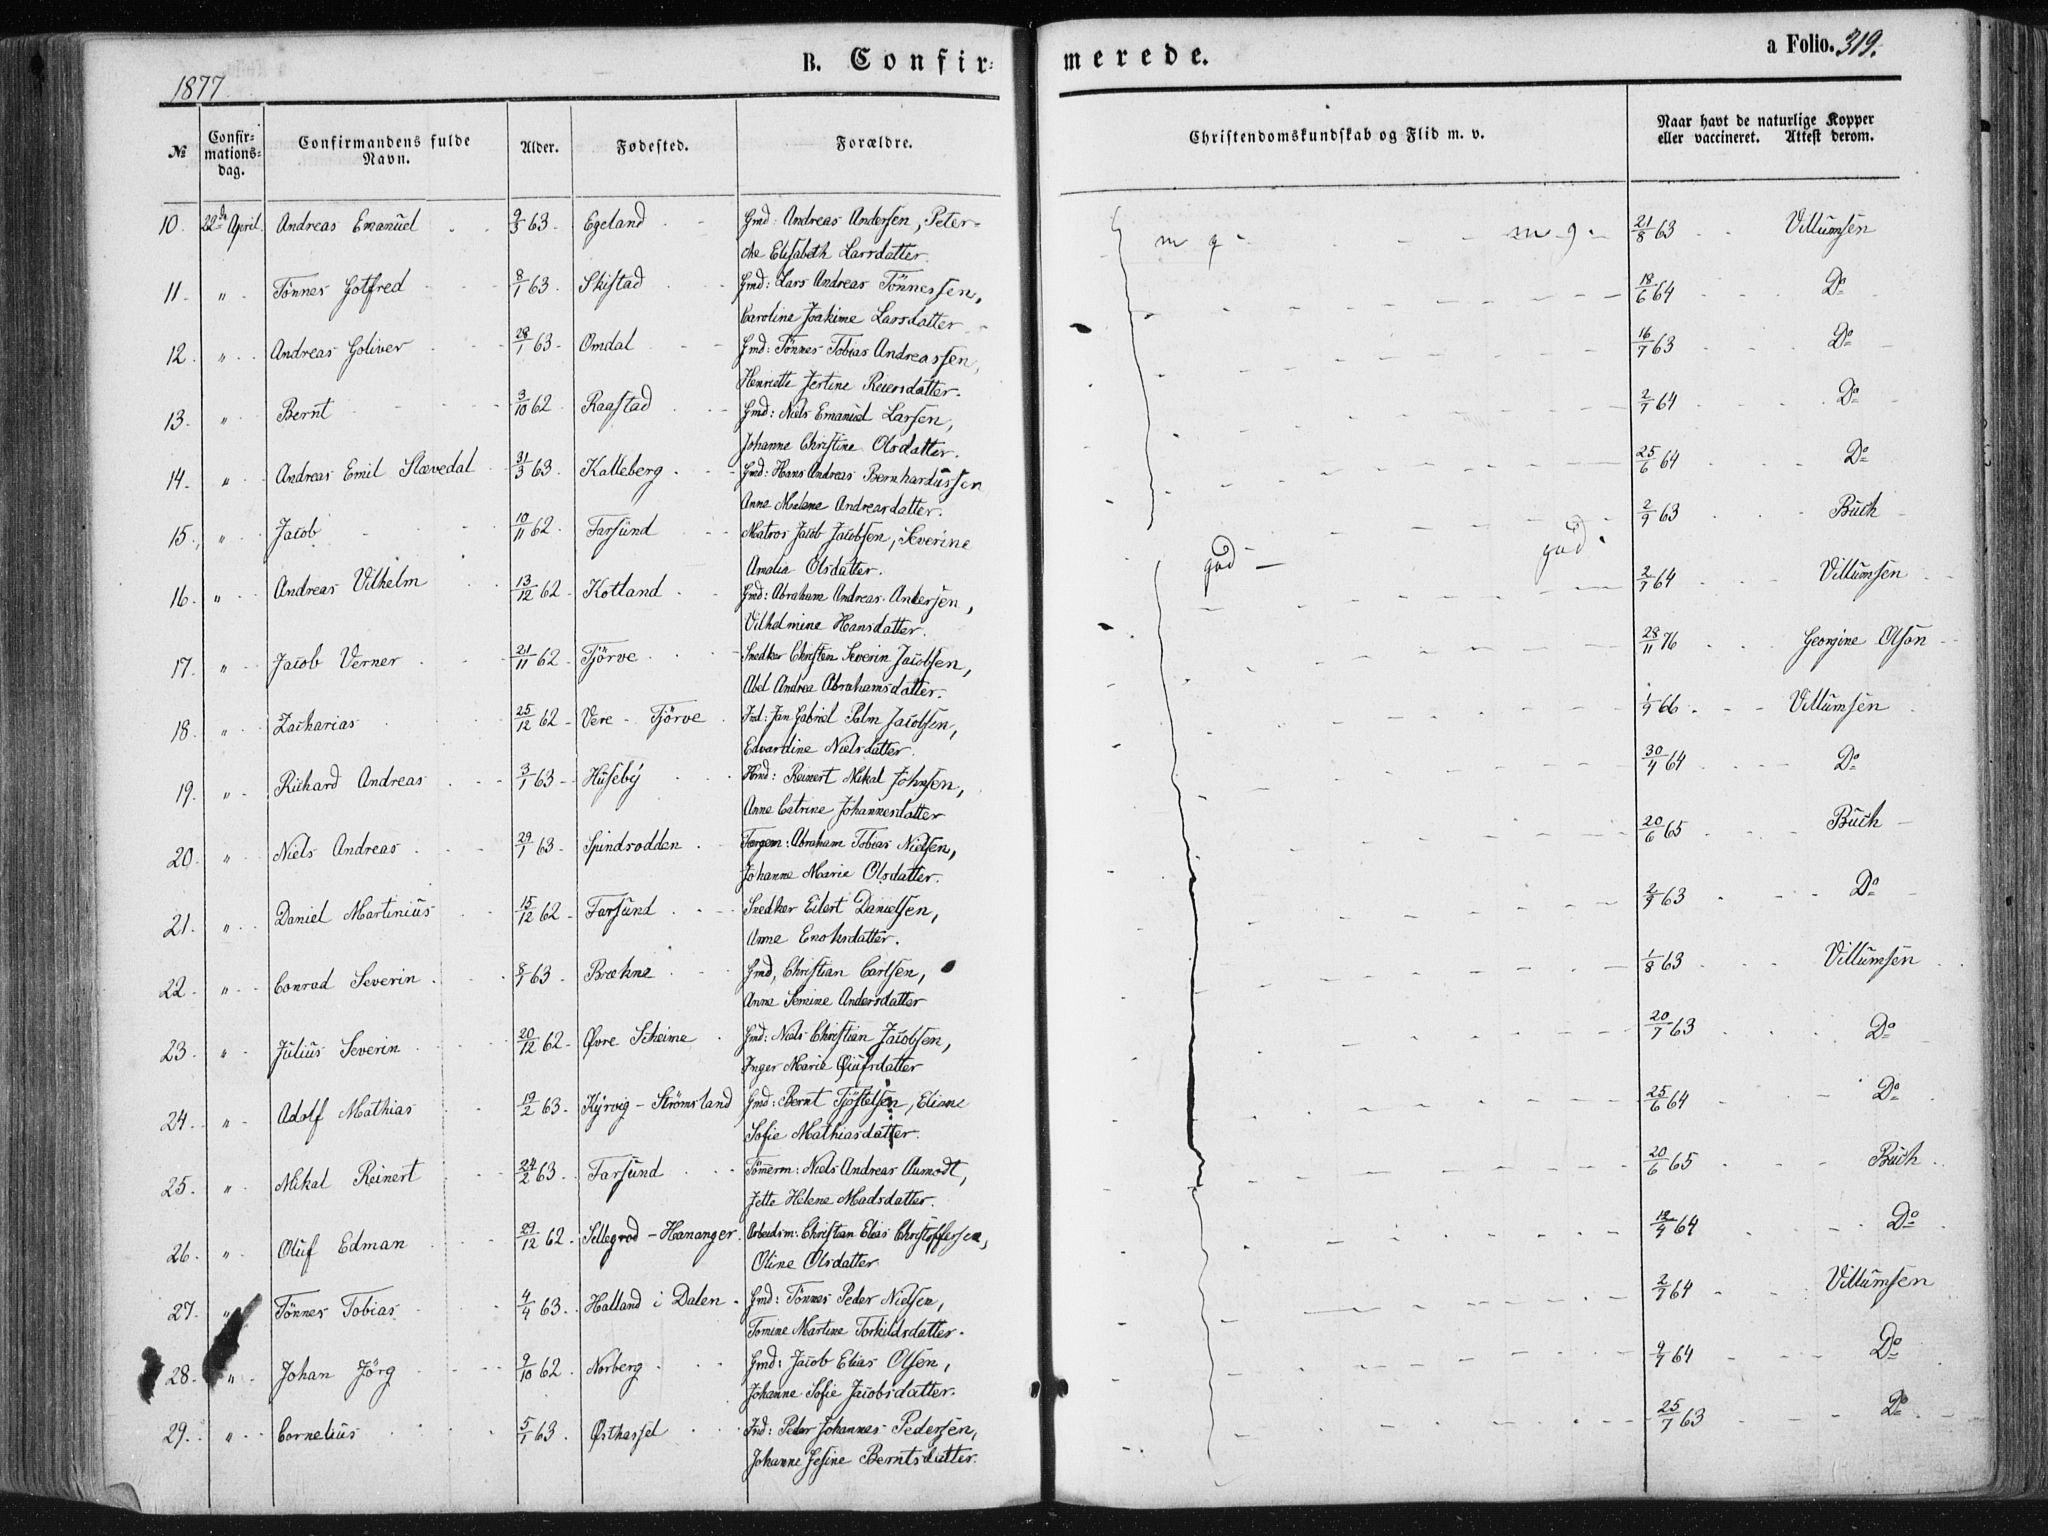 B. Confir- merede. a Folio. 319.
1877
№ Confir- mations- dag. Confirmandens fulde Navn. Alder. Fødested. Forældre. Christendomskundskab og Flid m. v. Naar havt de naturlige Kopper eller vaccineret. Attest derom.
10. 22de April. Andreas Emanuel 9/3 63. Egeland Gmd: Andreas Andersen, Peter- m g - m g - 21/8 63 Villumsen
che Elisabeth Larsdatter.
11. " Tönnes Gotfred 8/1 63. Skistad Gmd: Lars Andreas Tönnessen, 18/6 64 Do
Caroline Joakime Larsdatter
12. " Andreas Goliver 28/1 63. Omdal Gmd: Tönnes Tobias Andreassen, 16/7 63 Do
Henriette Jertine Reiersdatter.
13. " Bernt 3/10 62. Raastad Gmd: Niels Emanuel Larsen, 2/7 64 Do
Johanne Christine Olsdatter.
14. " Andreas Emil Slævedal 31/3 63. Kalleberg Gmd: Hans Andreas Bernhardussen 25/6 64 Do
Anne Malene Andreasdatter.
15. " Jacob 10/11 62. Farsund Matros Jacob Jacobsen, Severine god - god. 2/9 63 Buch
Amalia Olsdatter.
16. " Andreas Vilhelm 13/12 62. Kotland Gmd: Abraham Andreas Andersen, 2/7 64 Villumsen
Vilhelmine Hansdatter.
17. " Jacob Verner 21/11 62 Tjörve Snedker Christen Severin Jacobsen, 28/11 76 Georgine Olsen
Abel Andrea Abrahamsdatter.
18. " Zacharias 25/12 62 Vere - Tjörve Ind: Jan Gabriel Palm Jacobsen, 1/9 66 Villumsen
Edvardine Nielsdatter.
19. " Richard Andreas 3/1 63 Huseby Hmd: Reinert Mikal Johnsen, 30/4 64 Do
Anne Catrine Johannesdatter
20. " Niels Andreas 29/1 63. Spindsodden Færgem: Abraham Tobias Nielsen, 20/6 65 Buch
Johanne Marie Olsdatter.
21. " Daniel Martinius 15/12 62 Farsund Snedker Eilert Danielsen, 2/9 63 Do
Anne Enoksdatter.
22. " Conrad Severin 8/1 63. Brækne Gmd, Christian Carlsen, 1/8 63 Villumsen
Anne Semine Andersdatter
23. " Julius Severin 20/12 62 Øvre Skeime Gmd: Niels Christian Jacobsen, 20/7 63 Do
Inger Marie
24. " Adolf Mathias 19/2 63. Kyrvig - Strömsland Gmd: Bernt Tjöstelsen, Eliane 25/6 64 Do
Sofie Mathiasdatter.
25. " Mikal Reinert 24/2 63. Farsund Tömerm: Niels Andreas Aamodt, 20/6 65 Buch
Jette Helene Madsdatter.
26. " Oluf Edman 29/12 62. Sellegrod - Hananger. Arbeidsm: Christian Elias Christoffersen, 12/9 64 Do
Oline Olsdatter
27. " Tönnes Tobias 4/4 63. Halland i Dalen Gmd: Tönnes Peder Nielsen, 2/7 64 Villumsen
Tomine Martine Torkildsdatter.
28. " Johan Jörg 9/10 62 Norberg Gmd: Jacob Elias Olsen, 9/7 64 Do
Johanne Sofie Jacobsdatter.
29. " Cornelius 5/1 63. Østhassel Ind: Peder Johannes Pedersen, 25/7 63 Do
Johanne Gesine Berntsdatter.